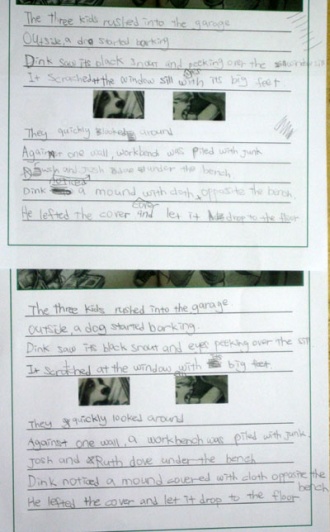 The three kids rushed into the garage
Outside, a dog started barking
Dink saw its black snout and peeking over the
It scratched the window sill with its big feet
They quickly around
Against one wall, workbench was piled with junk
and josh under the bench
Dink noticed a mound with cloth opposite the bench.
He lefted the cover and let it drop to the floor
The three kids rushed into the garage
outside, a dog started barking.
Dink saw its black snout and eyes peeking over the sill
It scratched at the window with big feet
They quickly looked around
Against one wall a workbench was piled with junk.
Josh and Ruth dove under the bench
Dink noticed a mound covered with cloth opposite the bench
He lefted the cover and let it drop to the floor